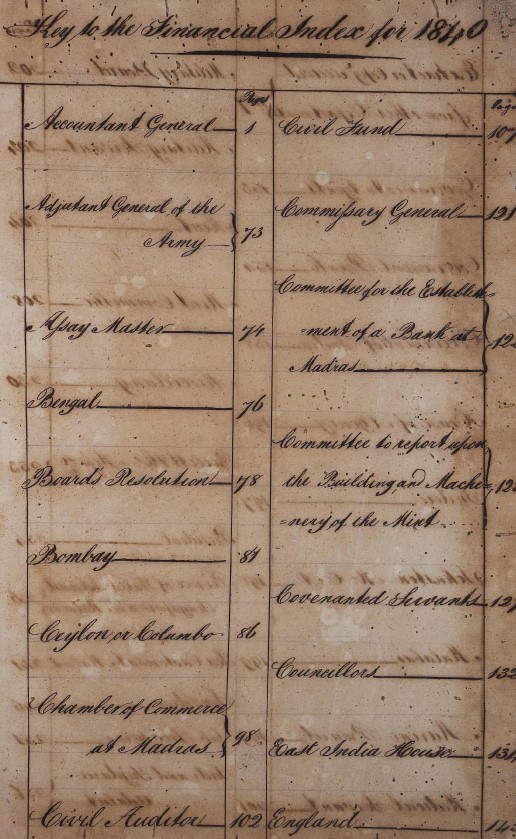 Key to the Financial Index for 1840
Page
Accountant General 1
Adjutant General, of the
Army 73
Assay Master 74
Bengal 76
Board's Resolution 78
Bombay 84
Ceylon, or Columbo 86
Chamber of Commerce
at Madras 98
Civil Auditor 102
Civil Fund 107
Commissary General 121
Committee for the Establish=
=ment of a Bank at
Madras
Committee to report upon
the Building, and Machi=
=nery, of the Mint
Covenanted Servants 127
Councillors 132
East India House
England